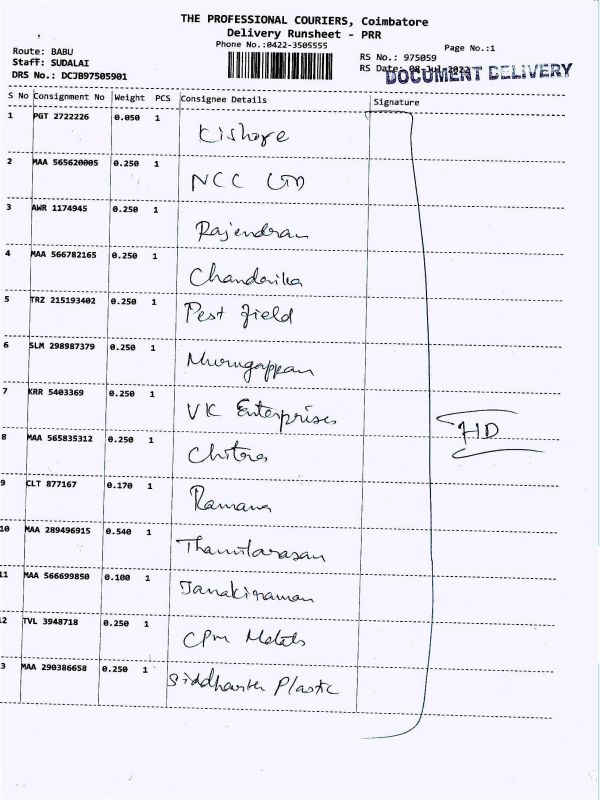 THE PROFESSIONAL COURIERS, Coimbatore
Delivery Runsheet - PRR
Phone No.:0422-3505555
Page No.:1
Route: BABU
Staff: SUDALAI
DRS No.: DCJB97505901
RS No.: 975059
RS Date: 08-Jul-2022
DOCUMENT DELIVERY
S No Consignment No Weight PCS Consignee Details Signature
1 PGT 2722226 0.050 1 Kishore
2 MAA 565620005 0.250 1 NCC LTD
3 AWR 1174945 0.250 1 Rajendran
4 MAA 566782165 0.250 1 Chandrika
5 TRZ 215193402 0.250 1 Pest field
6 SLM 298987379 0.250 1 Murugappan
7 KRR 5403369 0.250 1 VK Enterprises
8 MAA 565835312 0.250 1 Chitra
9 CLT 877167 0.170 1 Ramana
10 MAA 289496915 0.540 1 Thamilarasan
11 MAA 566699850 0.100 1 Janakiraman
2 TVL 3948718 0.250 1 CPM Metals
3 MAA 290386658 0.250 1 Siddharth Plastic